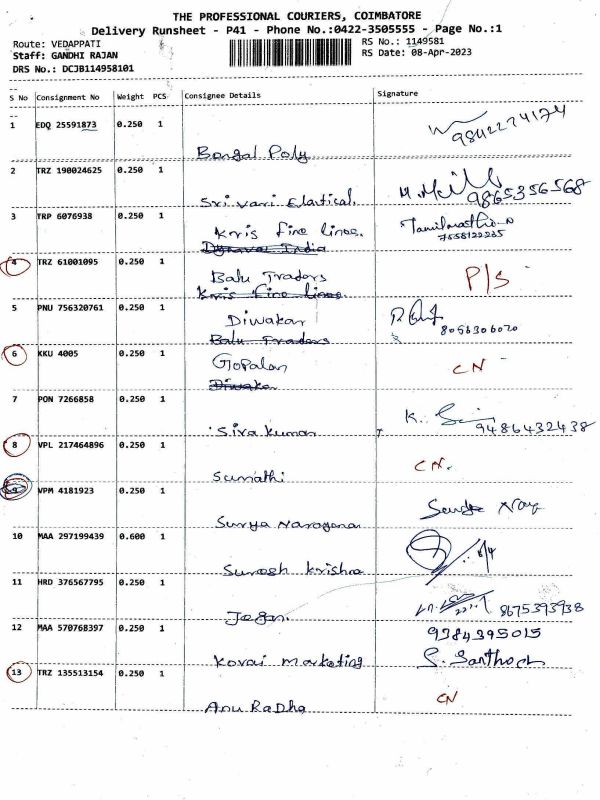 THE PROFESSIONAL COURIERS, COIMBATORE
Delivery Runsheet - P41 - Phone No.:0422-3505555 - Page No.:1
Route: VEDAPPATI
RS No.: 1149581
Staff: GANDHI RAJAN
RS Date: 08-Apr-2023
DRS No.: DCJB114958101
S No Consignment No Weight PCS Consignee Details Signature
1 EDQ 25591873 0.250 1
9842274174
Bengal Poly
2 TRZ 190024625 0.250 1
Sri Vari Elastical. 9865356568
3 TRP 6076938 0.250 1 Kris fine lines.
7558122235
4 TRZ 61001095 0.250 1 Balu Traders P/S
Kris fine lines.
5 PNU 756320761 0.250 1 Diwakar 8056306020
Balu Traders
6 KKU 4005 0.250 1 Gopalan CN
Diwakar
7 PON 7266858 0.250 1
Siva kumar 9486432438
8 VPL 217464896 0.250 1 CN.
Sumathi
9 VPM 4181923 0.250 1
Surya Narayana
10 MAA 297199439 0.600 1
Suresh Krishna
11 HRD 376567795 0.250 1
Jegan. 8675393938
12 MAA 570768397 0.250 1 9384395015
Kovai Marketing S. Santhosh
13 TRZ 135513154 0.250 1 CN
Anu Radha